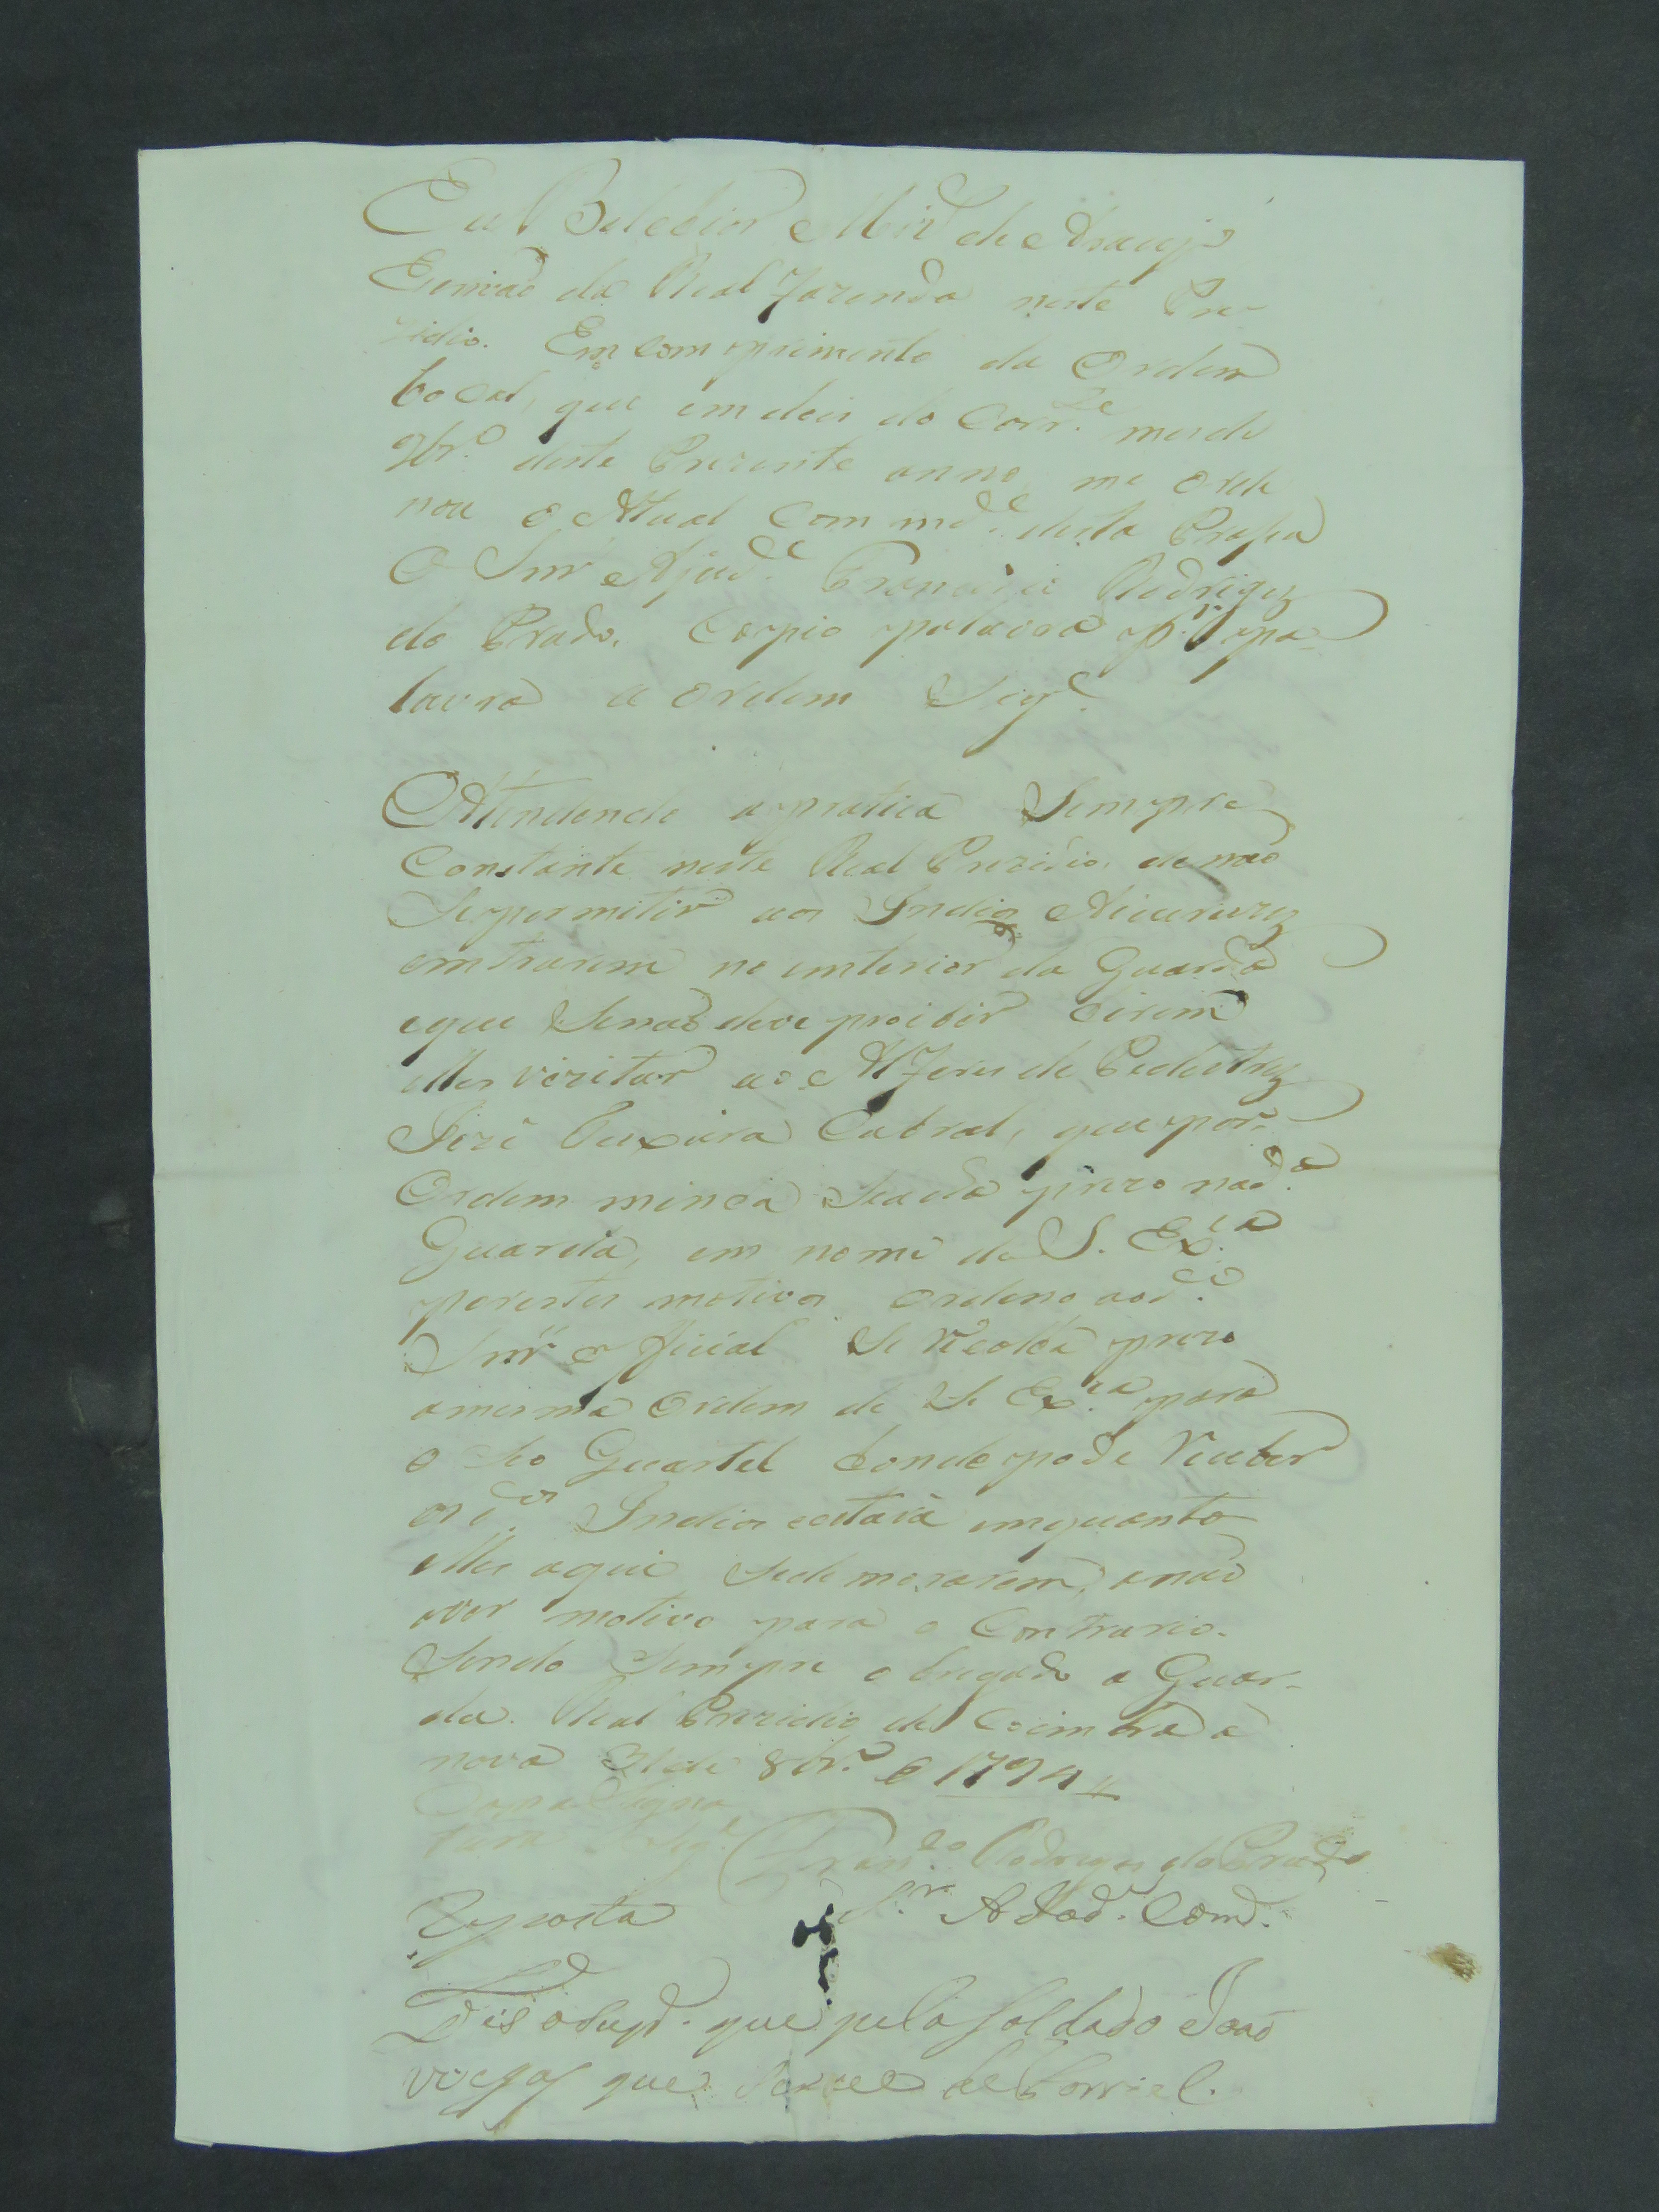 Eu Belchior Miz de Araujo
Escrivaõ da Real Fazenda neste Pre-
zidio. Em comprimento da Ordem
bocal, que em dois do Corr.te mes de
9br.o deste Prezente anno, me orde
nou o Atual Commd.e desta Prassa
O Snr Ajud.e Francisco Rodriguez
do Prado. Coopio palavra p.r pa-
lavra a ordem Seg.e
Attendendo apratica Sempre
Constante neste Real Prezidio de naõ
Sepermitir aos Indios Aicuruz
emtrarem no emterior da Guarda
eque Senaõ deve proibir oirem
elles vizitar ao Alferes de Pedestres
Joze Teixeira Cabral, que por
Ordem minha Seacha prezo nad.a
Guarda, em nome de S. Ex.ca
porestes motivos ordeno aod.o
Snr official Se recolha prezo
amesma Ordem de S Ex.ca para
o Seo Quartel donde pode receber
os d.os Indios eestará emquanto
elles aqui Sedemorarem, anaõ
aver motivo para o Contrario.
Sendo Sempre obrigado a Guar-
da. Real Prezidio de Coimbra a
nova 31 de 8br.o de 1794
Com a Signa
tura Seg.e
Fran.co Rodrigues do Prado
Resposta S.r Ajud.e Comd.e
Dis osup.e que pelo soldado Joaõ
viegas que Serve de Porriel.